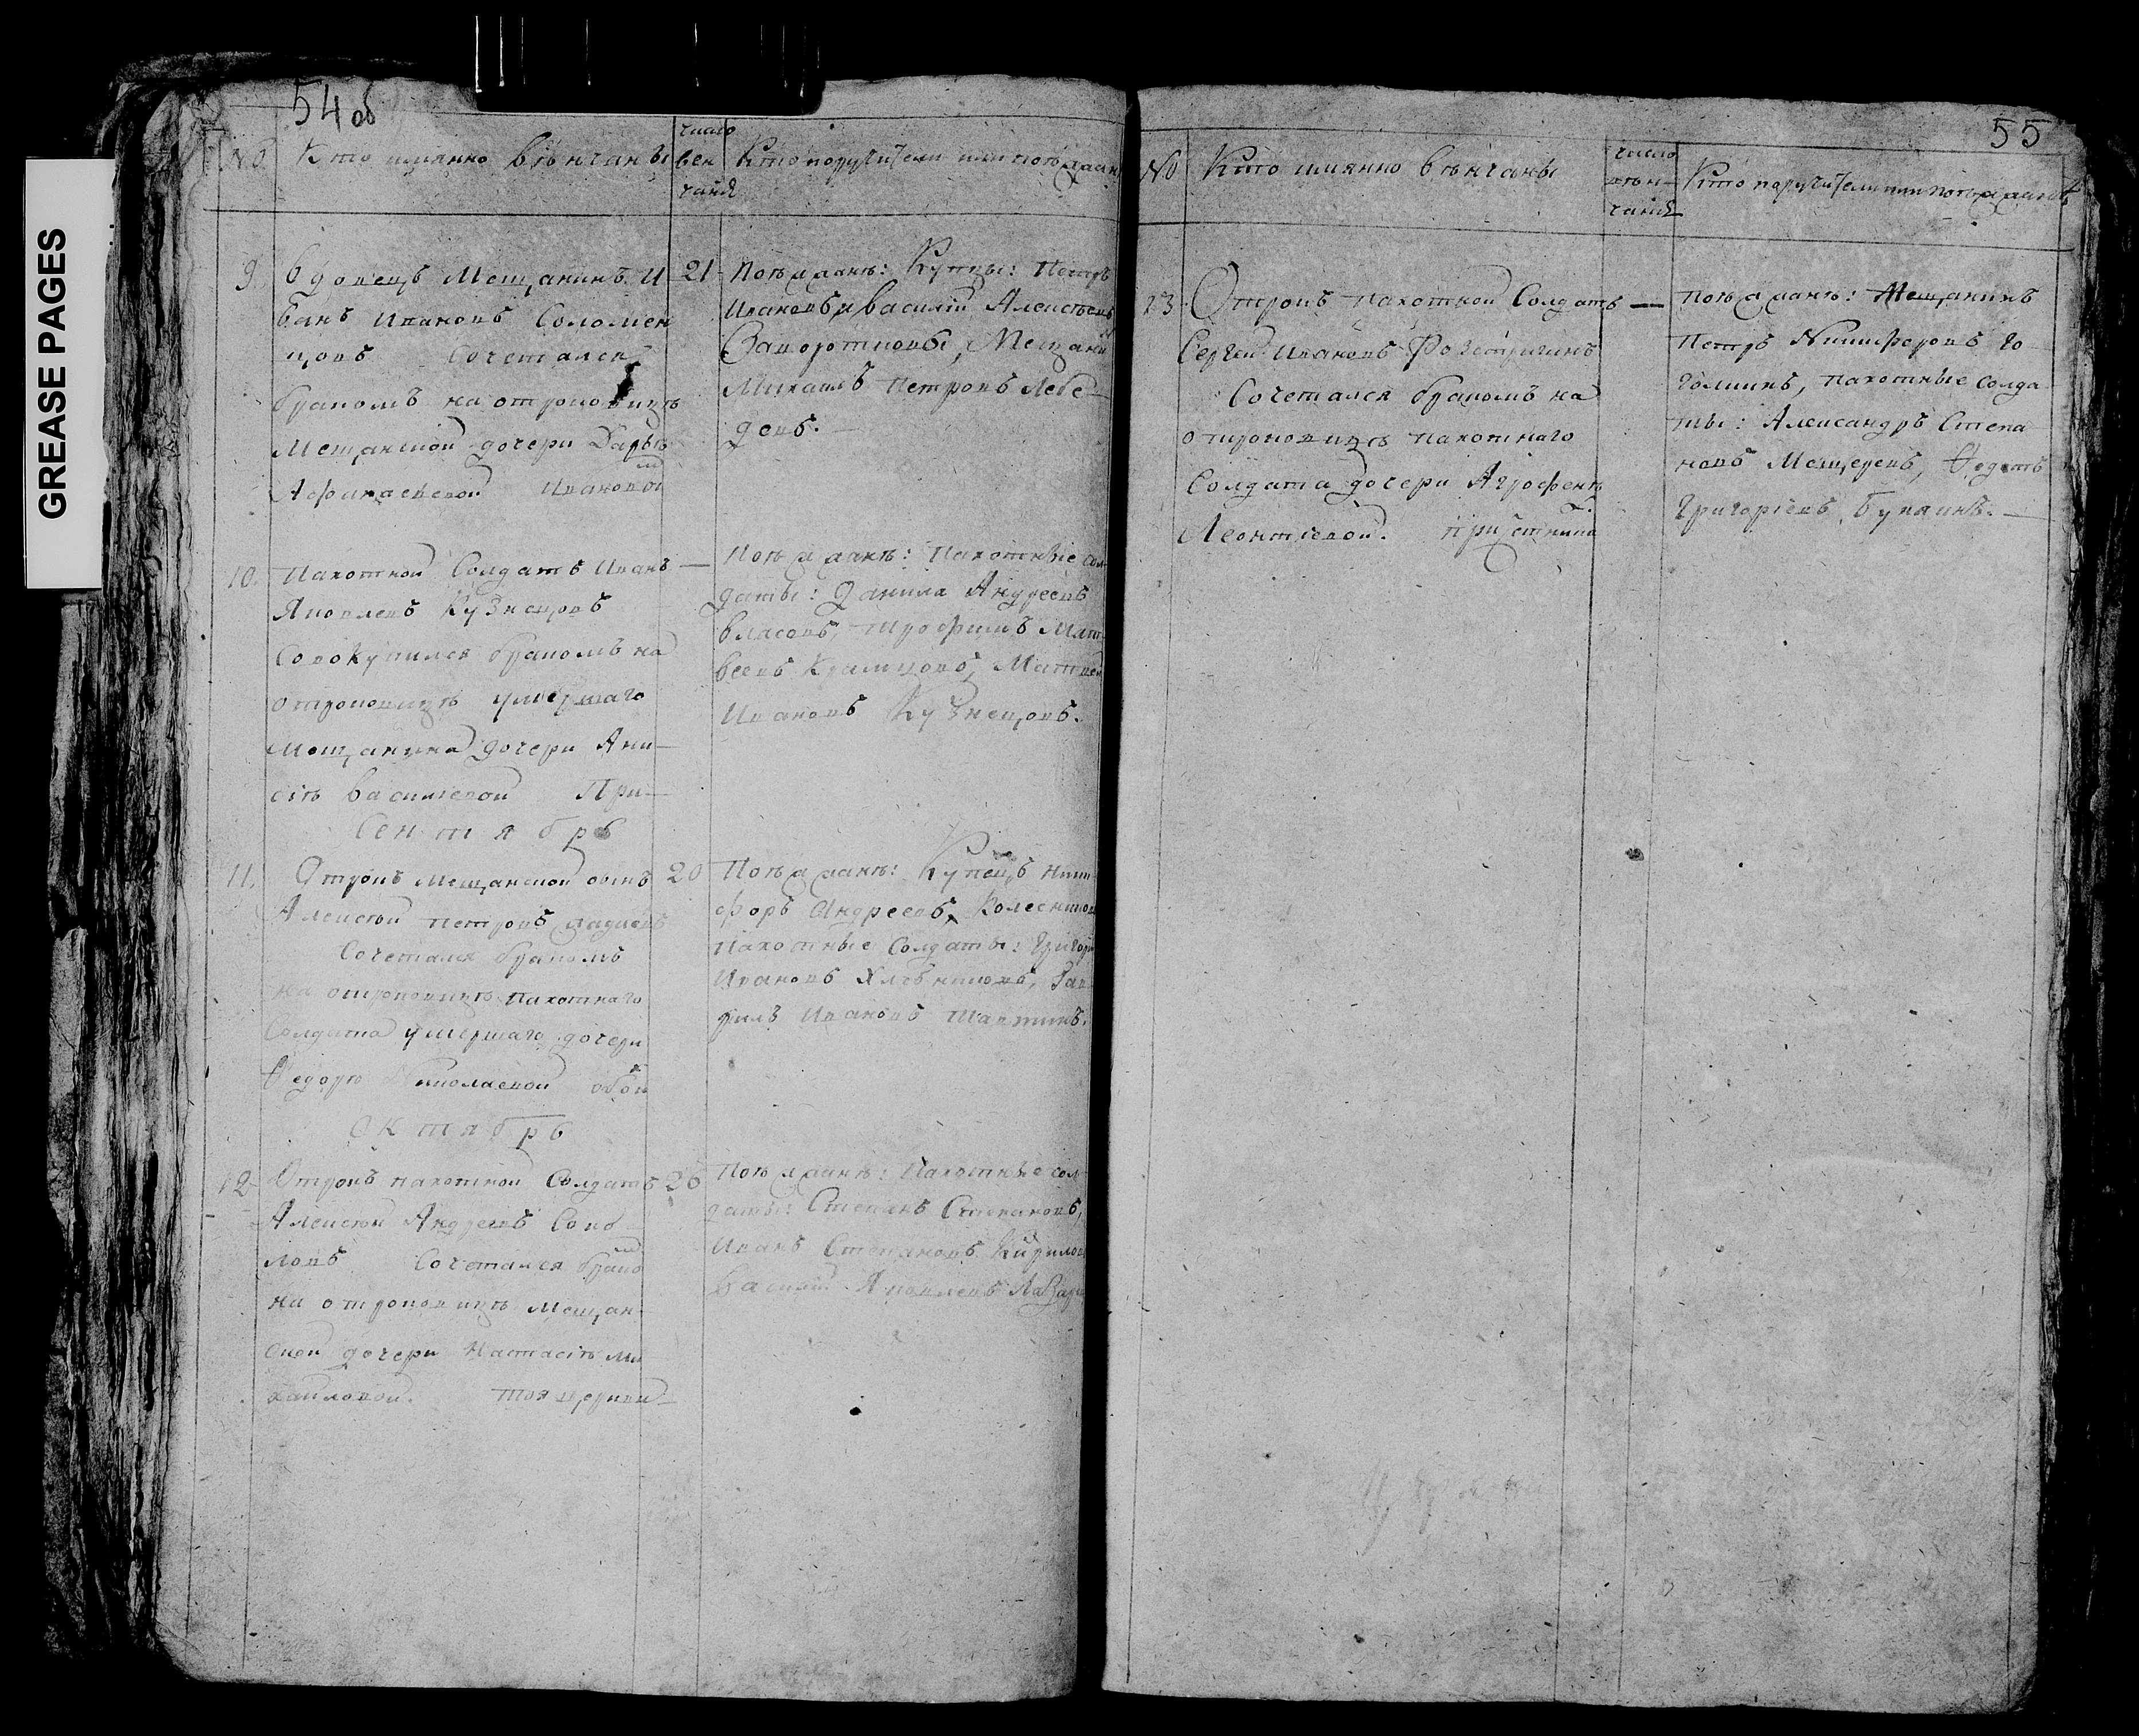 GREASE PAGES
54 об
№
Кто имянно венчаны
число
вен
чания
Кто поручители или поѣзжан
9.
Вдовецъ Мещанинъ И
ванъ Ивановъ Соломен
цовъ Сочетался
бракомъ на отроковицѣ
Мещанской дочери Дарьѣ
Афанасьевой Ивановой
21
Поѣзжанѣ: Купцы: Петръ
Ивановъ, Василій Алексѣевъ
Заворотковы, Мещани
Михаилъ Петровъ Лебе-
девъ. —
10.
Пахотной Солдатъ Иванъ —
Яковлевъ Кузнецовъ
Совокупился бракомъ на
отроковицѣ умершаго
Мещанина дочери Ани-
сіѣ Васильевой При-
Поѣзжанѣ: Пахотные сол-
даты: Данила Андреевъ
Власовъ, Трофимъ Мат
веевъ Матвей
Ивановъ Кузнецовъ.
Сентябрь
11.
Отрокъ Мещанской сынъ 20
Алексѣй Петровъ
Сочетался бракомъ
на отроковицѣ пахотнаго
Солдата умершаго дочери
Ѳедорѣ Николаевой обои
Поѣзжанѣ: Купецъ Ники-
форъ Андреевъ, Колесников
Пахотные Солдаты: Григори
Ивановъ Хлебниковъ, Гав
рилъ Ивановъ
Октябрь
12
Отрокъ пахотной Солдатъ 26
Алексѣй Андреевъ Соко
ловъ Сочетался брако
на отроковицѣ Мещан-
ской дочери Настасіѣ Ми
хайловой. Тоя церкви
Поѣзжанѣ: Пахотные сол-
даты: Степанъ Степановъ,
Иванъ Степановъ Кирилов
Василій Яковлевъ Лазаре
55
№
Кто имянно вѣнчаны
число
вѣн-
чания
Кто поручители или поѣзжанѣ
13.
Отрокъ пахотной Солдатъ —
Сергей Ивановъ
Сочетался бракомъ на
отроковицѣ пахотнаго
Солдата дочери Агрофенѣ
Леонтіевой.
Поѣзжанѣ: Мещанинъ
Петръ Никифоровъ Го-
голкинъ, пахотные солда
ты: Александръ Степа
новъ Мещеревъ, Ѳедотъ
Григоріевъ Букинъ. —